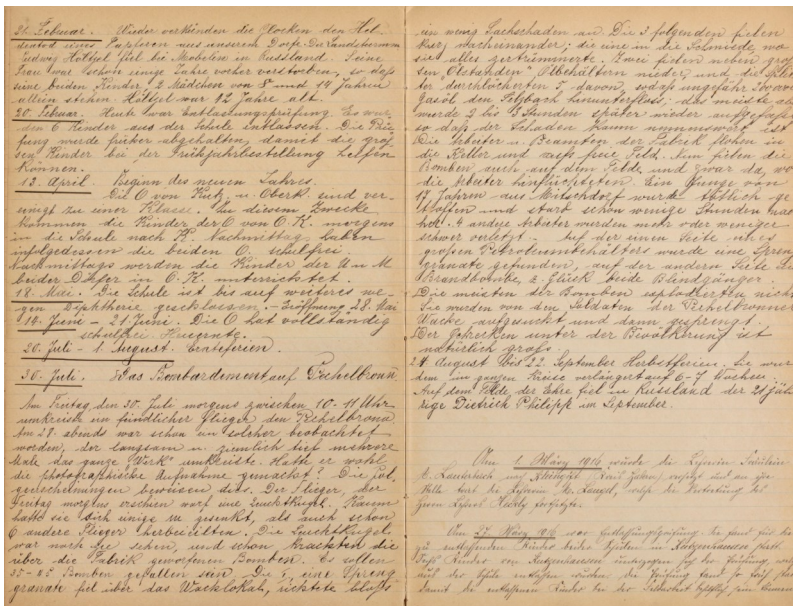 21. Februar. Wieder verkünden die Glocken den Hel-
dentod eines Tapferen aus unserem Dorfe. Der Landsturmmann
Ludwig Höltzel fiel bei in Russland. Seine
Frau war schon einige Jahre vorher verstorben, so daß
seine beiden Kinder, 2 Mädchen von 8 und 14 Jahren
allein stehen. Höltzel war 42 Jahre alt.
20. Februar. Heute war Entlassungsprüfung. Es wur-
den 6 Kinder aus der Schule entlassen. Die Prü-
fung wurde früher abgehalten, damit die grös-
sern Kinder bei der Frühjahrbestellung helfen
können.
13. April. Beginn des neuen Jahres.
Die O von Kutz. u. Oberk. sind ver-
einigt zu einer Klasse. Zu diesem Zwecke
kommen die Kinder der O von O. K. morgens
in die Schule nach K. Nachmittag haben
infolgedessen die beiden O schulfrei.
Nachmittags werden die Kinder der U u M
beider Dörfer in O. K. unterrichtet.
18. Mai. Die Schule ist bis auf weiteres we-
gen Diphtherie geschlossen. Eröffnung 28. Mai
14. Juni - 21. Juni. Die O hat vollständig
schulfrei. Heuernte.
20. Juli - 1. August. Ernteferien.
30. Juli. Das Bombardement auf Pechelbronn.
Am Freitag, den 30. Juli morgens zwischen 10-11 Uhr
umkreiste ein feindlicher Flieger den Pechelbronn.
Am 28. abends war schon ein solcher beobachtet
worden, der langsam u. ziemlich tief mehrere
Male das ganze Werk umkreiste. Hatte er wohl
die photographische Aufnahme gemacht? Die Fol-
generscheinungen beweisen dies. Der Flieger, der
Freitag morgens erschien warf eine Leuchtkugel. Kaum
hatte sie sich einige m gesenkt, als auch schon
6 andere Flieger herbeieilten. Die Leuchtkugel
war noch zu sehen, und schon krachten die
über die Fabrik geworfenen Bomben. Es sollen
35-85 Bomben gefallen sein. Die eine Spreng
granate fiel über das Wachlokal, richtete bloss
ein wenig Sachschaden an. Die 3 folgenden fielen
kurz nacheinander; die eine in die Schmiede, wo
sie alles zertrümmerte. Zwei fielen neben gros-
sen "Ölständen" Ölbehältern nieder, und die Split-
ter durchlöcherten 5 davon, sodaß ungefähr
Gasöl den Selzbach hinunterfloss; das meiste aber
wurde 2 bis 3 Stunden später wieder aufgefasst
so daß der Schaden kaum nennenswert ist.
Die Arbeiter u. Beamten der Fabrik flohen in
die Keller und aufs freie Feld. Nun fielen die
Bomben auch auf dem Felde, und zwar da, wo
die Arbeiter hinflüchteten. Ein Junge von
17 Jahren aus Mitschdorf wurde tötlich ge-
troffen und starb schon wenige Stunden nach
her. 4 andere Arbeiter wurden mehr oder weniger
schwer verletzt. Auf der einen Seite eines
großen Petroleumbehälters wurde eine Spreng
granate gefunden, auf der andern Seite eine
Brandbombe, z. Glück beide Blindgänger.
Die meisten der Bomben explodierten nicht.
Sie wurden von den Soldaten der Pechelbronner
Wache aufgesucht und dann gesprengt.
Der Schrecken unter der Bevölkerung ist
natürlich groß.
24. August bis 22. September Herbstferien. Sie wur-
den im ganzen Kreise verlängert auf 6-7 Wochen.
Auf dem Felde der Ehre fiel in Russland der 21 jäh-
rige Dietrich Philipp im September.
Am 1. März 1916 wurde die Lehrerin Fräulein
M. Lauterbach nach versetzt und an ihre
Stelle trat die Lehrerin M. welche die Vertretung des
Herrn Lehrers fortsetzte.
Am 27. März 1916 war Entlassungsprüfung für die
zu entlassenden Kinder beider Schulen in Kutzenhausen statt.
Sechs Kinder von Kutzenhausen
aus der Schule entlassen wurden. Die Prüfung fand so früh statt
damit die entlassenen Kinder bei der Feldarbeit behilflich sein können.